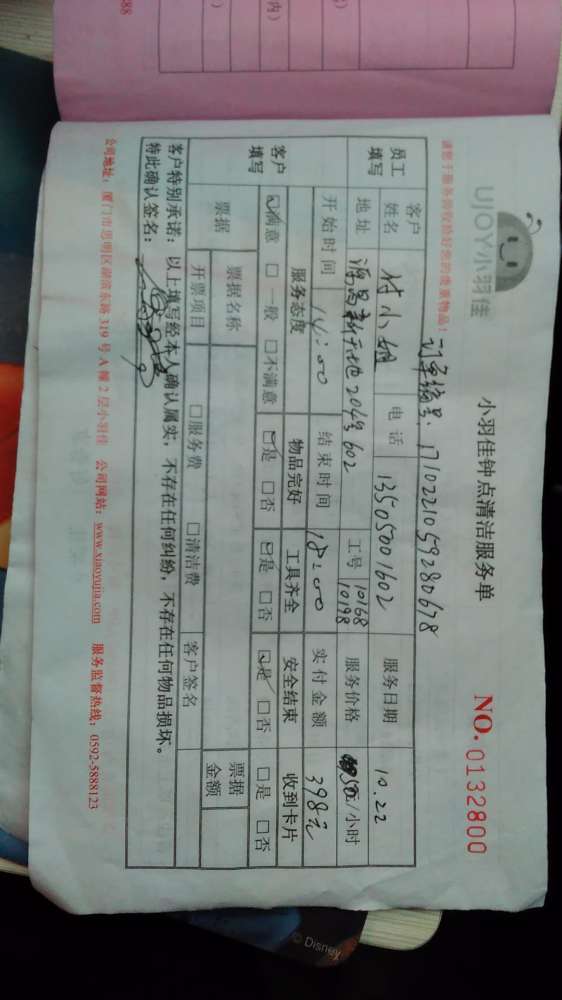 UJOY小羽佳
小羽佳钟点清洁服务单
NO. 0132800
请您于服务前收捡好您的贵重物品！
订单编号：171022105928067​8
员工填写
客户姓名 付小姐 电话 13505001602 服务日期 10.22
地址 源昌新天地204号602 工号 10168 10198 服务价格 50元/小时
开始时间 14:00 结束时间 18:00 实付金额 398元
客户填写
服务态度 物品完好 工具齐全 安全结束 收到卡片
☑满意 □一般 □不满意 ☑是 □否 ☑是 □否 ☑是 □否 □是 □否
票据
票据名称 票据金额
开票项目 □服务费 □清洁费 客户签名
客户特别承诺：以上填写经本人确认属实，不存在任何纠纷，不存在任何物品损坏。
特此确认签名：
公司地址：厦门市思明区湖滨东路319号A幢2层小羽佳 公司网站：www.xiaoyujia.com 服务监督热线：0592-5888123
© Disney